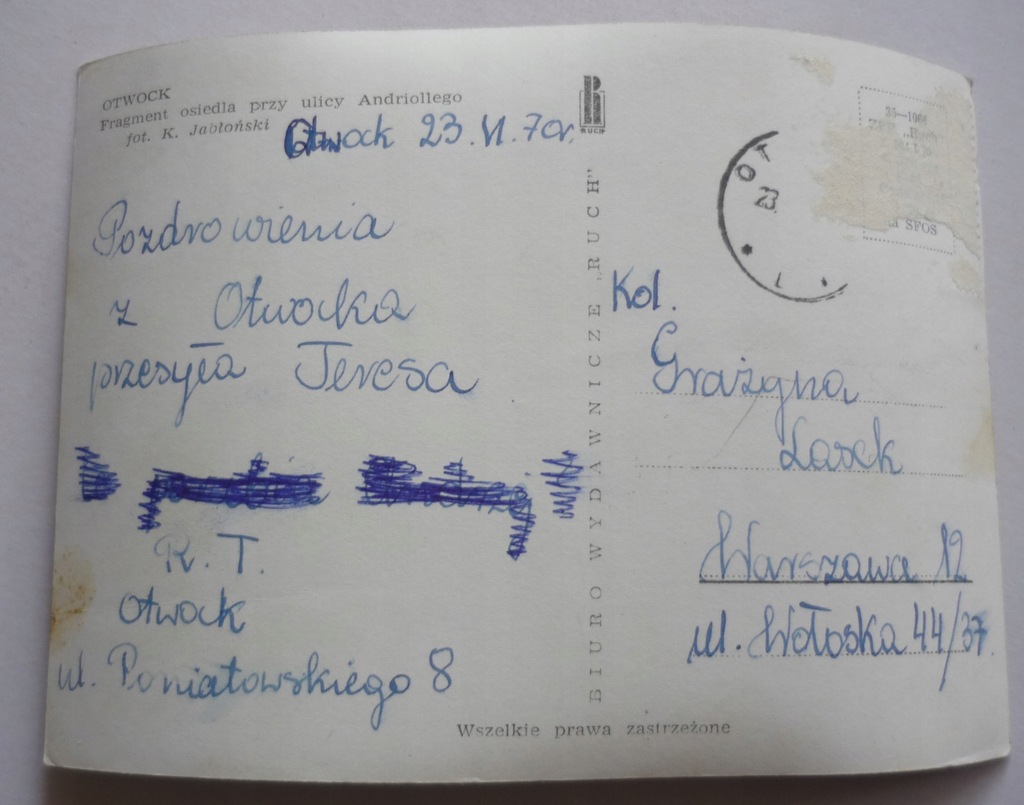 OTWOCK
Fragment osiedla przy ulicy Andriollego
fot. K. Jabłoński
Otwock 23.VI.70r.
Pozdrowienia
z Otwocka
przesyła Teresa
R. T.
Otwock
ul. Poniatowskiego 8
RUCH
BIURO WYDAWNICZE "RUCH"
OT
23
35—1004
SFOS
Kol.
Grażyna
Lasek
Warszawa 12
ul. Wołoska 44/37.
Wszelkie prawa zastrzeżone